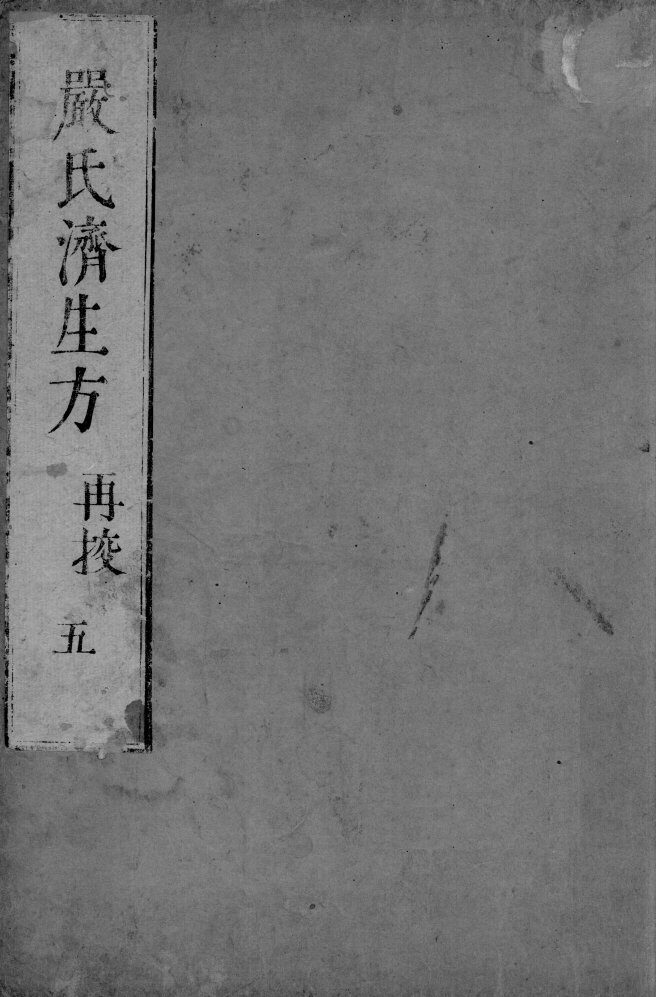 嚴氏濟生方 再挍 五